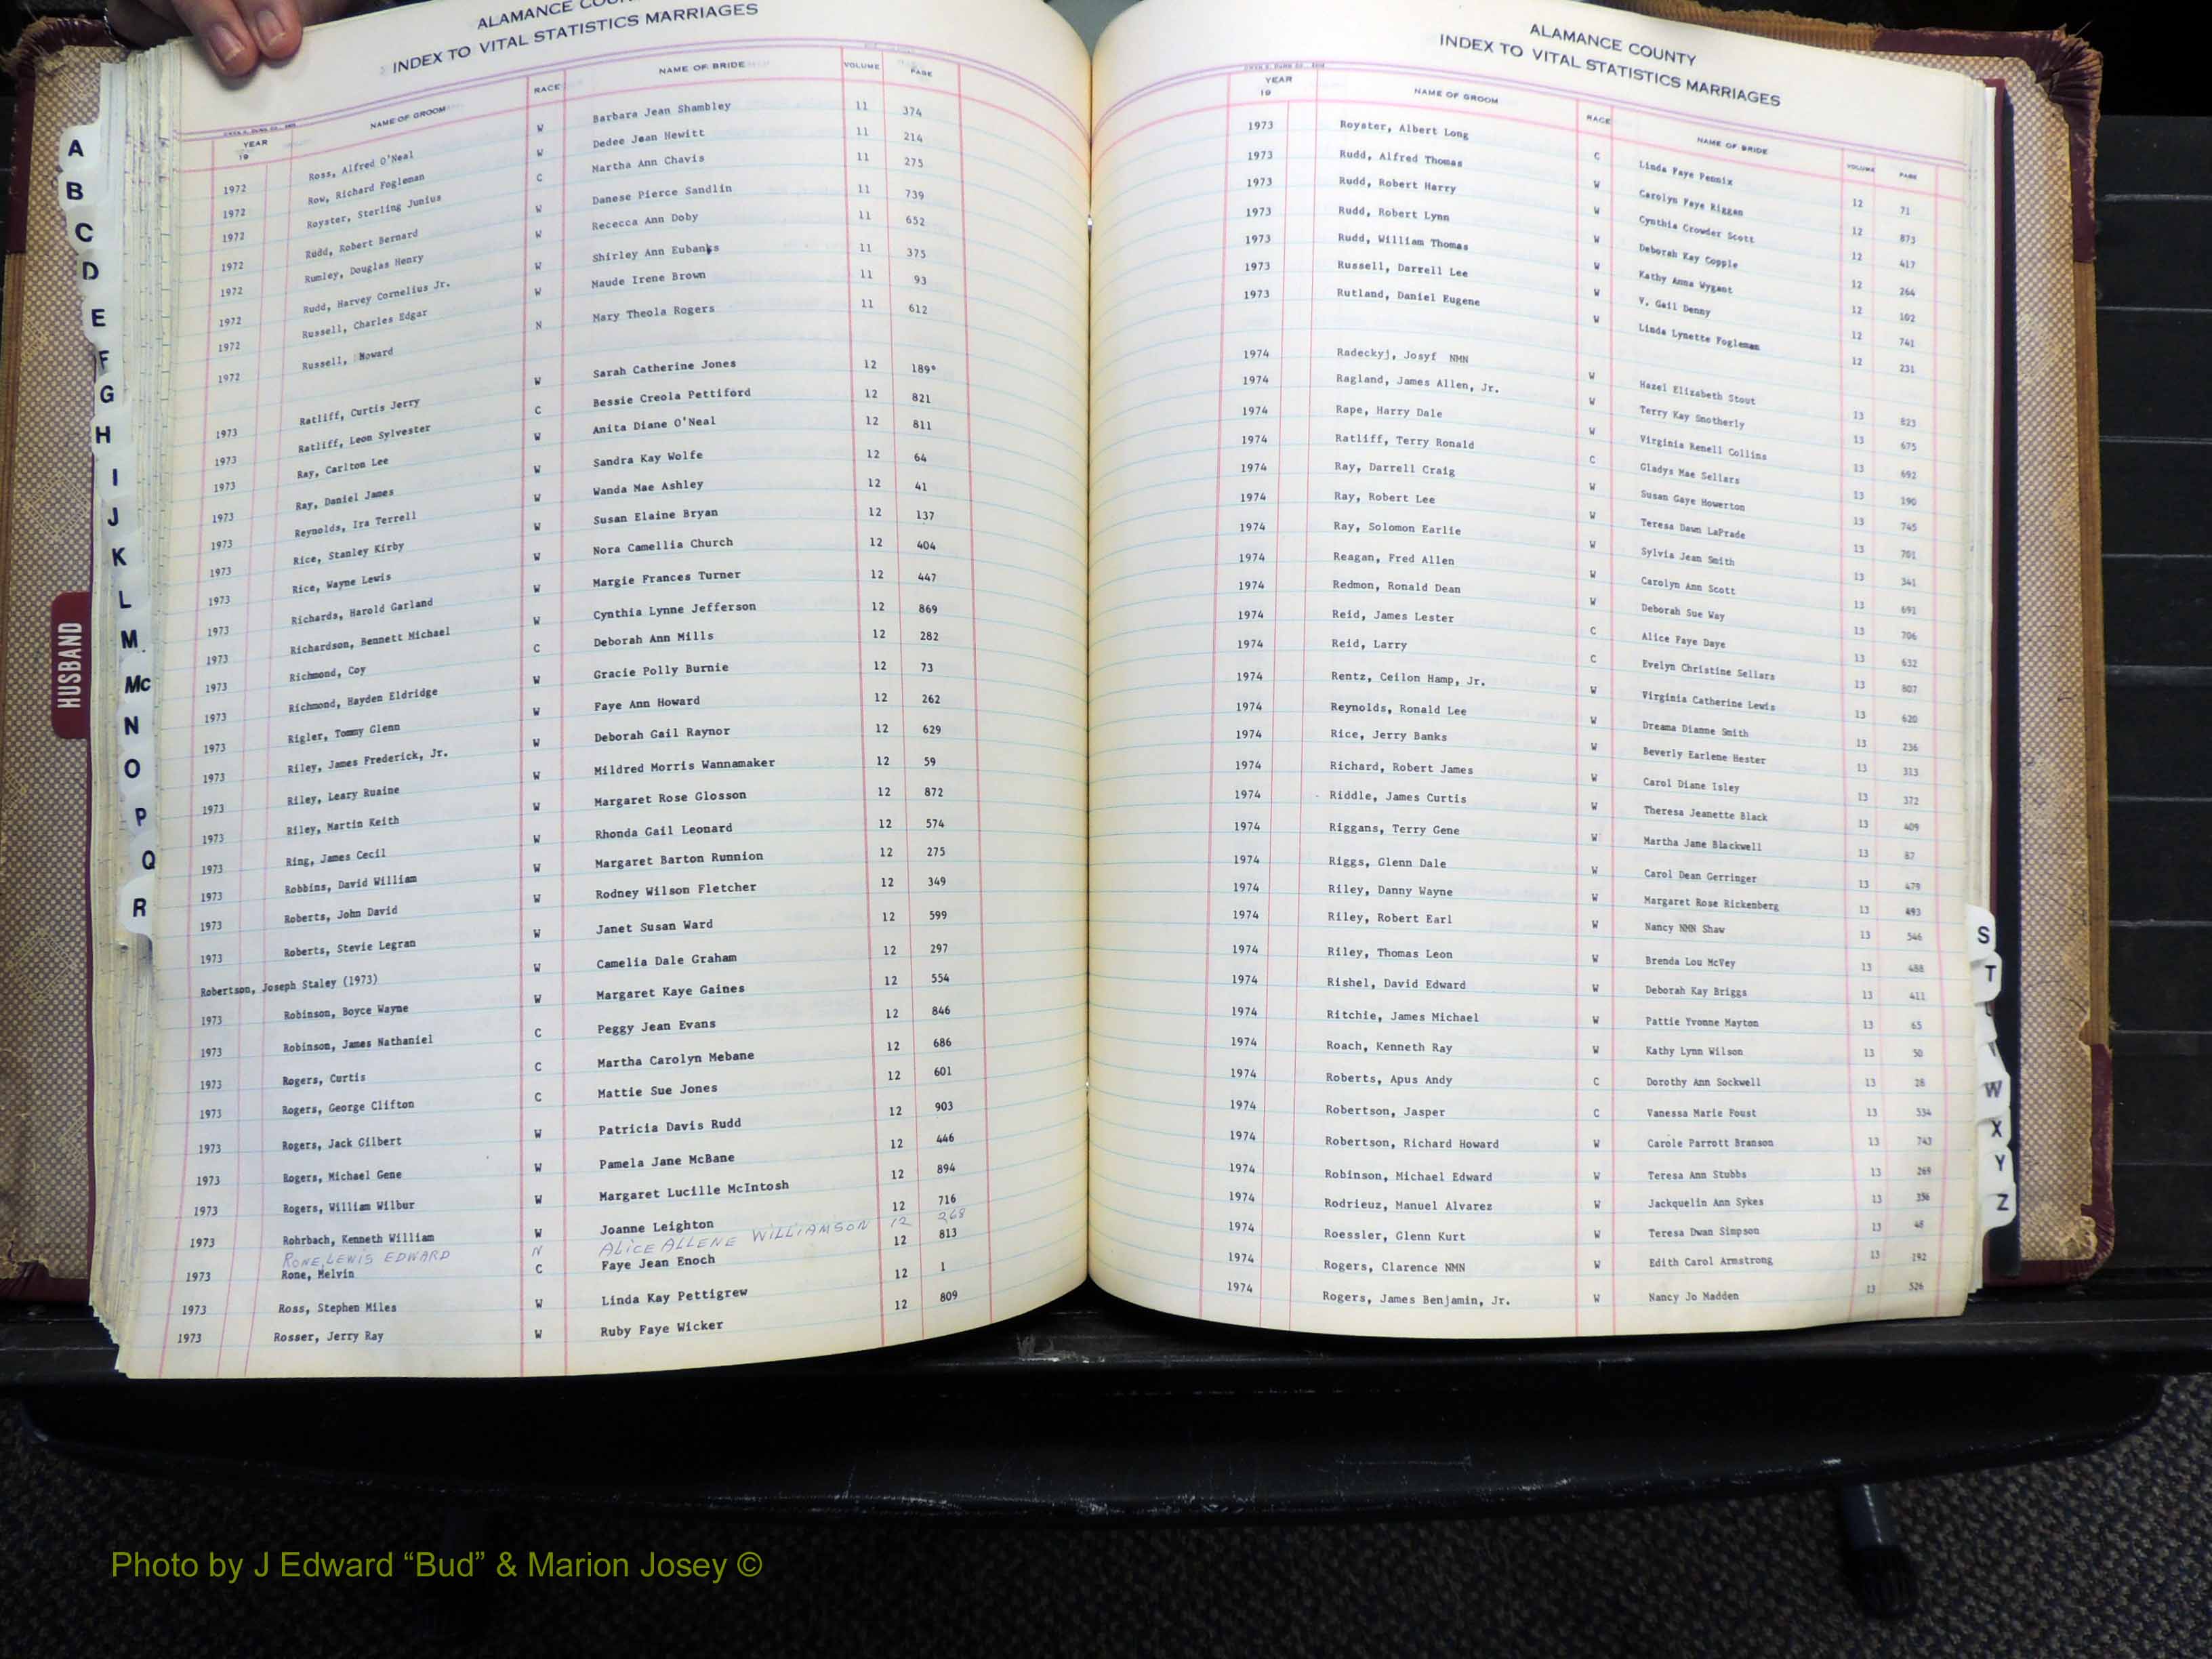 ALAMANCE COUN
INDEX TO VITAL STATISTICS MARRIAGES
YEAR 19 NAME OF GROOM RACE NAME OF BRIDE VOLUME PAGE
1972 Ross, Alfred O'Neal W Barbara Jean Shambley 11 374
1972 Row, Richard Fogleman W Dedee Jean Hewitt 11 214
1972 Royster, Sterling Junius C Martha Ann Chavis 11 275
1972 Rudd, Robert Bernard W Danese Pierce Sandlin 11 739
1972 Rumley, Douglas Henry W Rececca Ann Doby 11 652
1972 Rudd, Harvey Cornelius Jr. W Shirley Ann Eubanks 11 375
1972 Russell, Charles Edgar W Maude Irene Brown 11 93
1972 Russell, Howard N Mary Theola Rogers 11 612
1973 Ratliff, Curtis Jerry W Sarah Catherine Jones 12 189*
1973 Ratliff, Leon Sylvester C Bessie Creola Pettiford 12 821
1973 Ray, Carlton Lee W Anita Diane O'Neal 12 811
1973 Ray, Daniel James W Sandra Kay Wolfe 12 64
1973 Reynolds, Ira Terrell W Wanda Mae Ashley 12 41
1973 Rice, Stanley Kirby W Susan Elaine Bryan 12 137
1973 Rice, Wayne Lewis W Nora Camellia Church 12 404
1973 Richards, Harold Garland W Margie Frances Turner 12 447
1973 Richardson, Bennett Michael W Cynthia Lynne Jefferson 12 869
1973 Richmond, Coy C Deborah Ann Mills 12 282
1973 Richmond, Hayden Eldridge W Gracie Polly Burnie 12 73
1973 Rigler, Tommy Glenn W Faye Ann Howard 12 262
1973 Riley, James Frederick, Jr. W Deborah Gail Raynor 12 629
1973 Riley, Leary Ruaine W Mildred Morris Wannamaker 12 59
1973 Riley, Martin Keith W Margaret Rose Glosson 12 872
1973 Ring, James Cecil W Rhonda Gail Leonard 12 574
1973 Robbins, David William W Margaret Barton Runnion 12 275
1973 Roberts, John David W Rodney Wilson Fletcher 12 349
1973 Roberts, Stevie Legran W Janet Susan Ward 12 599
Robertson, Joseph Staley (1973) W Camelia Dale Graham 12 297
1973 Robinson, Boyce Wayne W Margaret Kaye Gaines 12 554
1973 Robinson, James Nathaniel C Peggy Jean Evans 12 846
1973 Rogers, Curtis C Martha Carolyn Mebane 12 686
1973 Rogers, George Clifton C Mattie Sue Jones 12 601
1973 Rogers, Jack Gilbert W Patricia Davis Rudd 12 903
1973 Rogers, Michael Gene W Pamela Jane McBane 12 446
1973 Rogers, William Wilbur W Margaret Lucille McIntosh 12 894
1973 Rohrbach, Kenneth William W Joanne Leighton 12 716
RONE, LEWIS EDWARD N ALICE ALLENE WILLIAMSON 12 268
1973 Rone, Melvin C Faye Jean Enoch 12 813
1973 Ross, Stephen Miles W Linda Kay Pettigrew 12 1
1973 Rosser, Jerry Ray W Ruby Faye Wicker 12 809
HUSBAND
A
B
C
D
E
F
G
H
I
J
K
L
M
Mc
N
O
P
Q
R
ALAMANCE COUNTY
INDEX TO VITAL STATISTICS MARRIAGES
YEAR 19 NAME OF GROOM RACE NAME OF BRIDE VOLUME PAGE
1973 Royster, Albert Long C Linda Faye Pennix 12 71
1973 Rudd, Alfred Thomas W Carolyn Faye Riggan 12 873
1973 Rudd, Robert Harry W Cynthia Crowder Scott 12 417
1973 Rudd, Robert Lynn W Deborah Kay Copple 12 264
1973 Rudd, William Thomas W Kathy Anna Wygant 12 102
1973 Russell, Darrell Lee W V. Gail Denny 12 741
1973 Rutland, Daniel Eugene W Linda Lynette Fogleman 12 231
1974 Radeckyj, Josyf NMN W Hazel Elizabeth Stout 13 823
1974 Ragland, James Allen, Jr. W Terry Kay Snotherly 13 675
1974 Rape, Harry Dale W Virginia Renell Collins 13 692
1974 Ratliff, Terry Ronald C Gladys Mae Sellars 13 190
1974 Ray, Darrell Craig W Susan Gaye Howerton 13 745
1974 Ray, Robert Lee W Teresa Dawn LaPrade 13 701
1974 Ray, Solomon Earlie W Sylvia Jean Smith 13 341
1974 Reagan, Fred Allen W Carolyn Ann Scott 13 691
1974 Redmon, Ronald Dean W Deborah Sue Way 13 706
1974 Reid, James Lester C Alice Faye Daye 13 632
1974 Reid, Larry C Evelyn Christine Sellars 13 807
1974 Rentz, Ceilon Hamp, Jr. W Virginia Catherine Lewis 13 620
1974 Reynolds, Ronald Lee W Dreama Dianne Smith 13 236
1974 Rice, Jerry Banks W Beverly Earlene Hester 13 313
1974 Richard, Robert James W Carol Diane Isley 13 372
1974 Riddle, James Curtis W Theresa Jeanette Black 13 409
1974 Riggans, Terry Gene W Martha Jane Blackwell 13 87
1974 Riggs, Glenn Dale W Carol Dean Gerringer 13 479
1974 Riley, Danny Wayne W Margaret Rose Rickenberg 13 493
1974 Riley, Robert Earl W Nancy NMN Shaw 13 546
1974 Riley, Thomas Leon W Brenda Lou McVey 13 488
1974 Rishel, David Edward W Deborah Kay Briggs 13 411
1974 Ritchie, James Michael W Pattie Yvonne Mayton 13 65
1974 Roach, Kenneth Ray W Kathy Lynn Wilson 13 50
1974 Roberts, Apus Andy C Dorothy Ann Sockwell 13 28
1974 Robertson, Jasper C Vanessa Marie Foust 13 534
1974 Robertson, Richard Howard W Carole Parrott Branson 13 743
1974 Robinson, Michael Edward W Teresa Ann Stubbs 13 269
1974 Rodrieuz, Manuel Alvarez W Jackquelin Ann Sykes 13 356
1974 Roessler, Glenn Kurt W Teresa Dwan Simpson 13 48
1974 Rogers, Clarence NMN W Edith Carol Armstrong 13 192
1974 Rogers, James Benjamin, Jr. W Nancy Jo Madden 13 526
S
T
W
X
Y
Z
Photo by J Edward “Bud” & Marion Josey ©